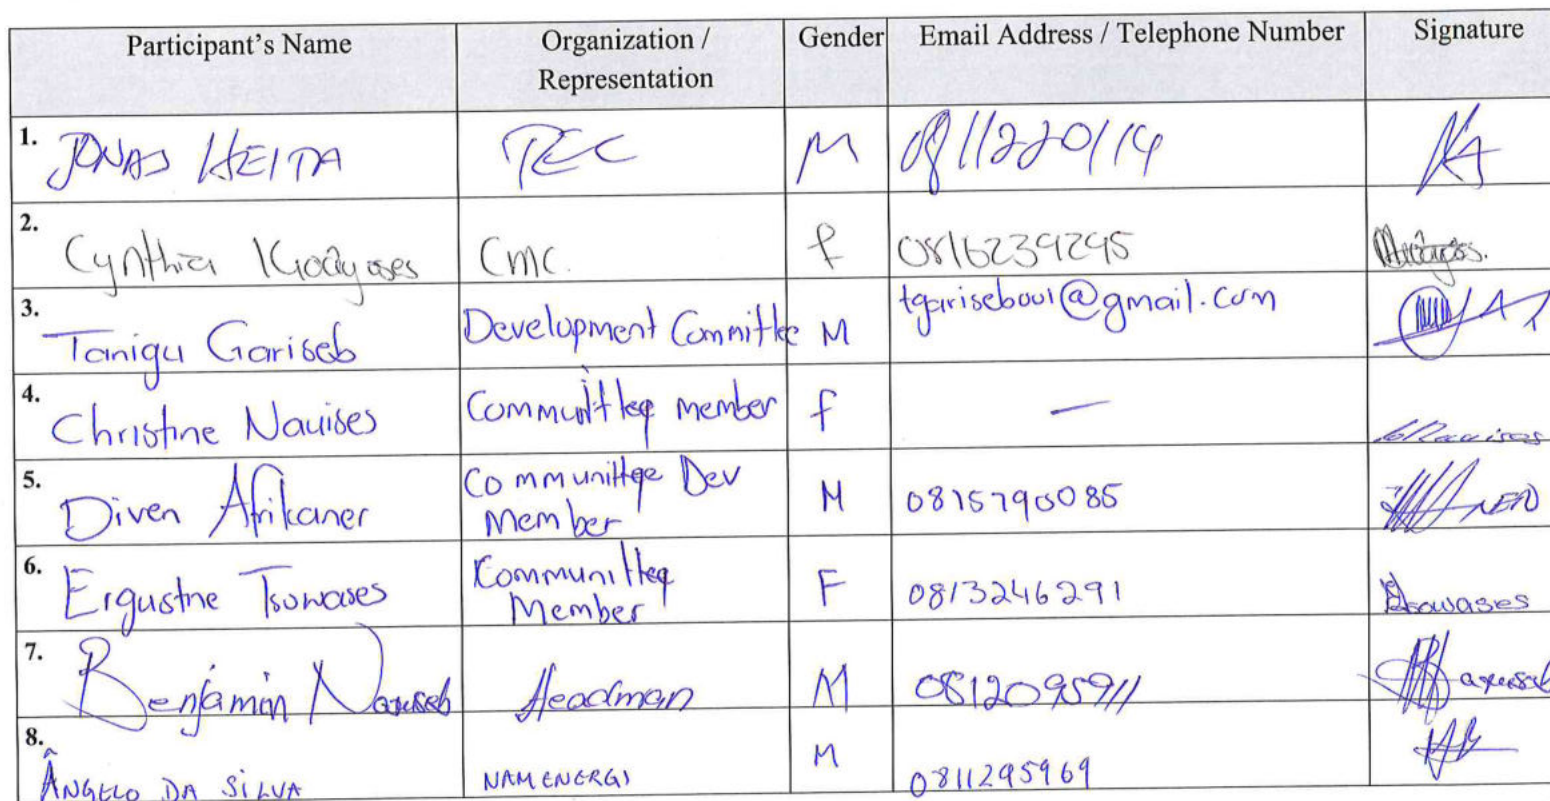 Participant's Name Organization / Representation Gender Email Address / Telephone Number Signature
1. JONAS HEITA TEC M 0811220114
2. Cynthia CMC. f 0816239295
3. Tanigu Gariseb Development Committee M tgariseb001@gmail.com
4. Christine Nauises Member f —
5. Diven Afrikaner Dev Member M 0815790085
6. Ergustne Tsowases Member F 0813246291 Tsowases
7. Benjamin Naruseb Headman M 0812095911
8. ÂNGELO DA SILVA NAMENERGI M 0811295969